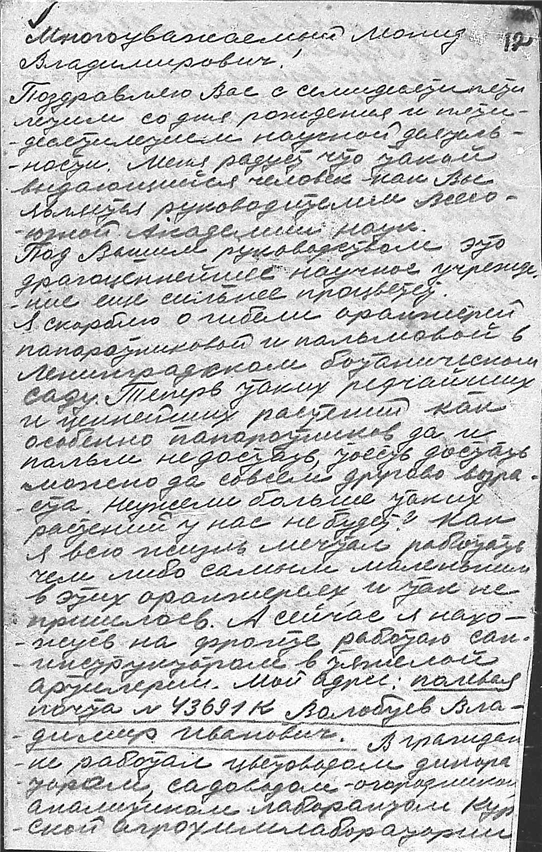 Многоуважаемый
12
Владимирович!
Поздравляю Вас с семидесятипяти
летием со дня рождения и пяти-
-десятилетием научной деятель-
-ности. Меня радует что такой
выдающийся человек как Вы
является руководителем Всесо-
-юзной Академии наук.
Под Вашим руководством это
драгоценнейшее научное учрежде-
-ние еще сильнее процветет.
Я скорблю о гибели оранжерей
папоротниковой и пальмовой в
Ленинградском ботаническом
саду. Теперь таких редчайших
и ценнейших растений как
особенно папоротников да и
пальм не достать, то есть достать
можно да совсем другово возра-
-ста. Неужели больше таких
растений у нас не будет? Как
я всю жизнь мечтал работать
чем либо самым маленьким
в этих оранжереях и так не
пришлось. А сейчас я нахо-
-жусь на фронте работаю сан-
-инструктором в тяжелой
артилерии. Мой адрес: полевая
почта № 43691К Волобуев Вла-
-димир Иванович. В граждан
-ке работал цветоводом дикора
тором, садоводом-огородником
аналитиком лаборантом Кур-
-ской агрохимлаборатории